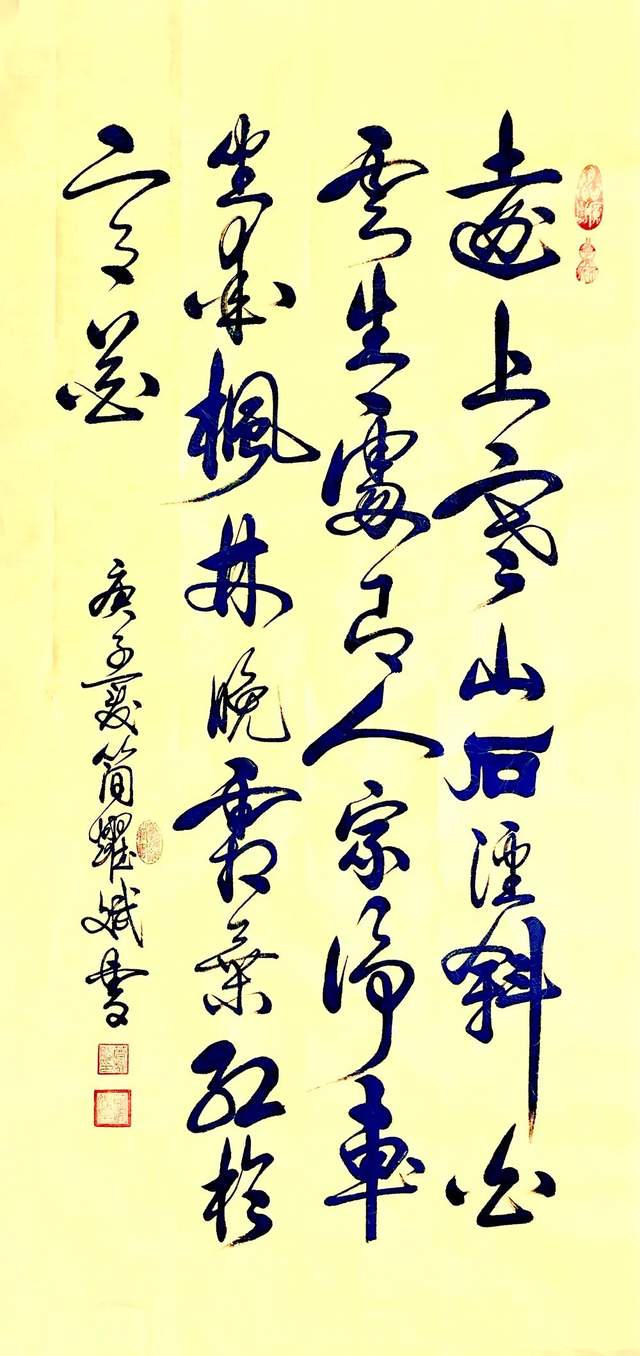 遠上寒山石徑斜白
雲生處有人家停車
坐愛楓林晚霜葉紅於
二月花
庚子夏简耀斌書